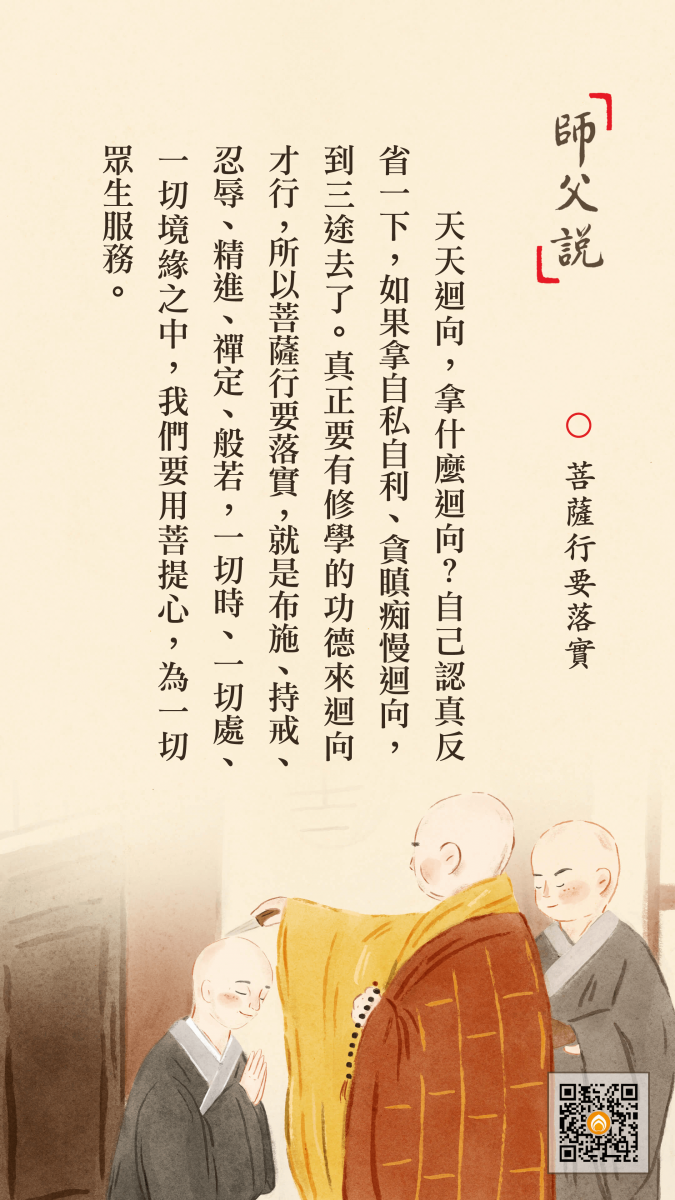 師父說
○ 菩薩行要落實
天天迴向，拿什麼迴向？自己認真反
省一下，如果拿自私自利、貪瞋痴慢迴向，
到三途去了。真正要有修學的功德來迴向
才行，所以菩薩行要落實，就是布施、持戒、
忍辱、精進、禪定、般若，一切時、一切處、
一切境緣之中，我們要用菩提心，為一切
眾生服務。